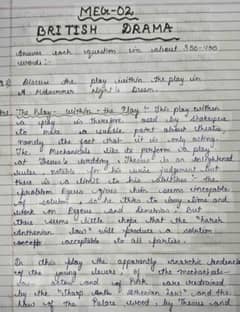 MEG-02
BRITISH DRAMA
Answer each question in about 350-400
words:-
Discuss the play within the play in
A Midsummer Night's Dream.
"The Play- within- the Play" This play within
a play is therefore used by Shakespeare
to make a subtle point about theatre,
namely the fact that it is only acting.
The Mechanicals like to perform a play
at Theseus's wedding. Theseus is an enlightened
ruler, notable for his wise judgement but
there is a limit to his abilities - the
problem Egeus gives him seems incapable
of solution, so he tries to buy time and
work on Egeus and Demetrius. But
there seems little hope that the "harsh
Athenian law" will produce a solution
acceptable to all parties.
In this play the apparently anarchic tendencies
of the young lovers, of the mechanicals-
as and of Puck are restrained
by the "Sharp Athenian law" and the
law of the Palace wood, by Theseus and